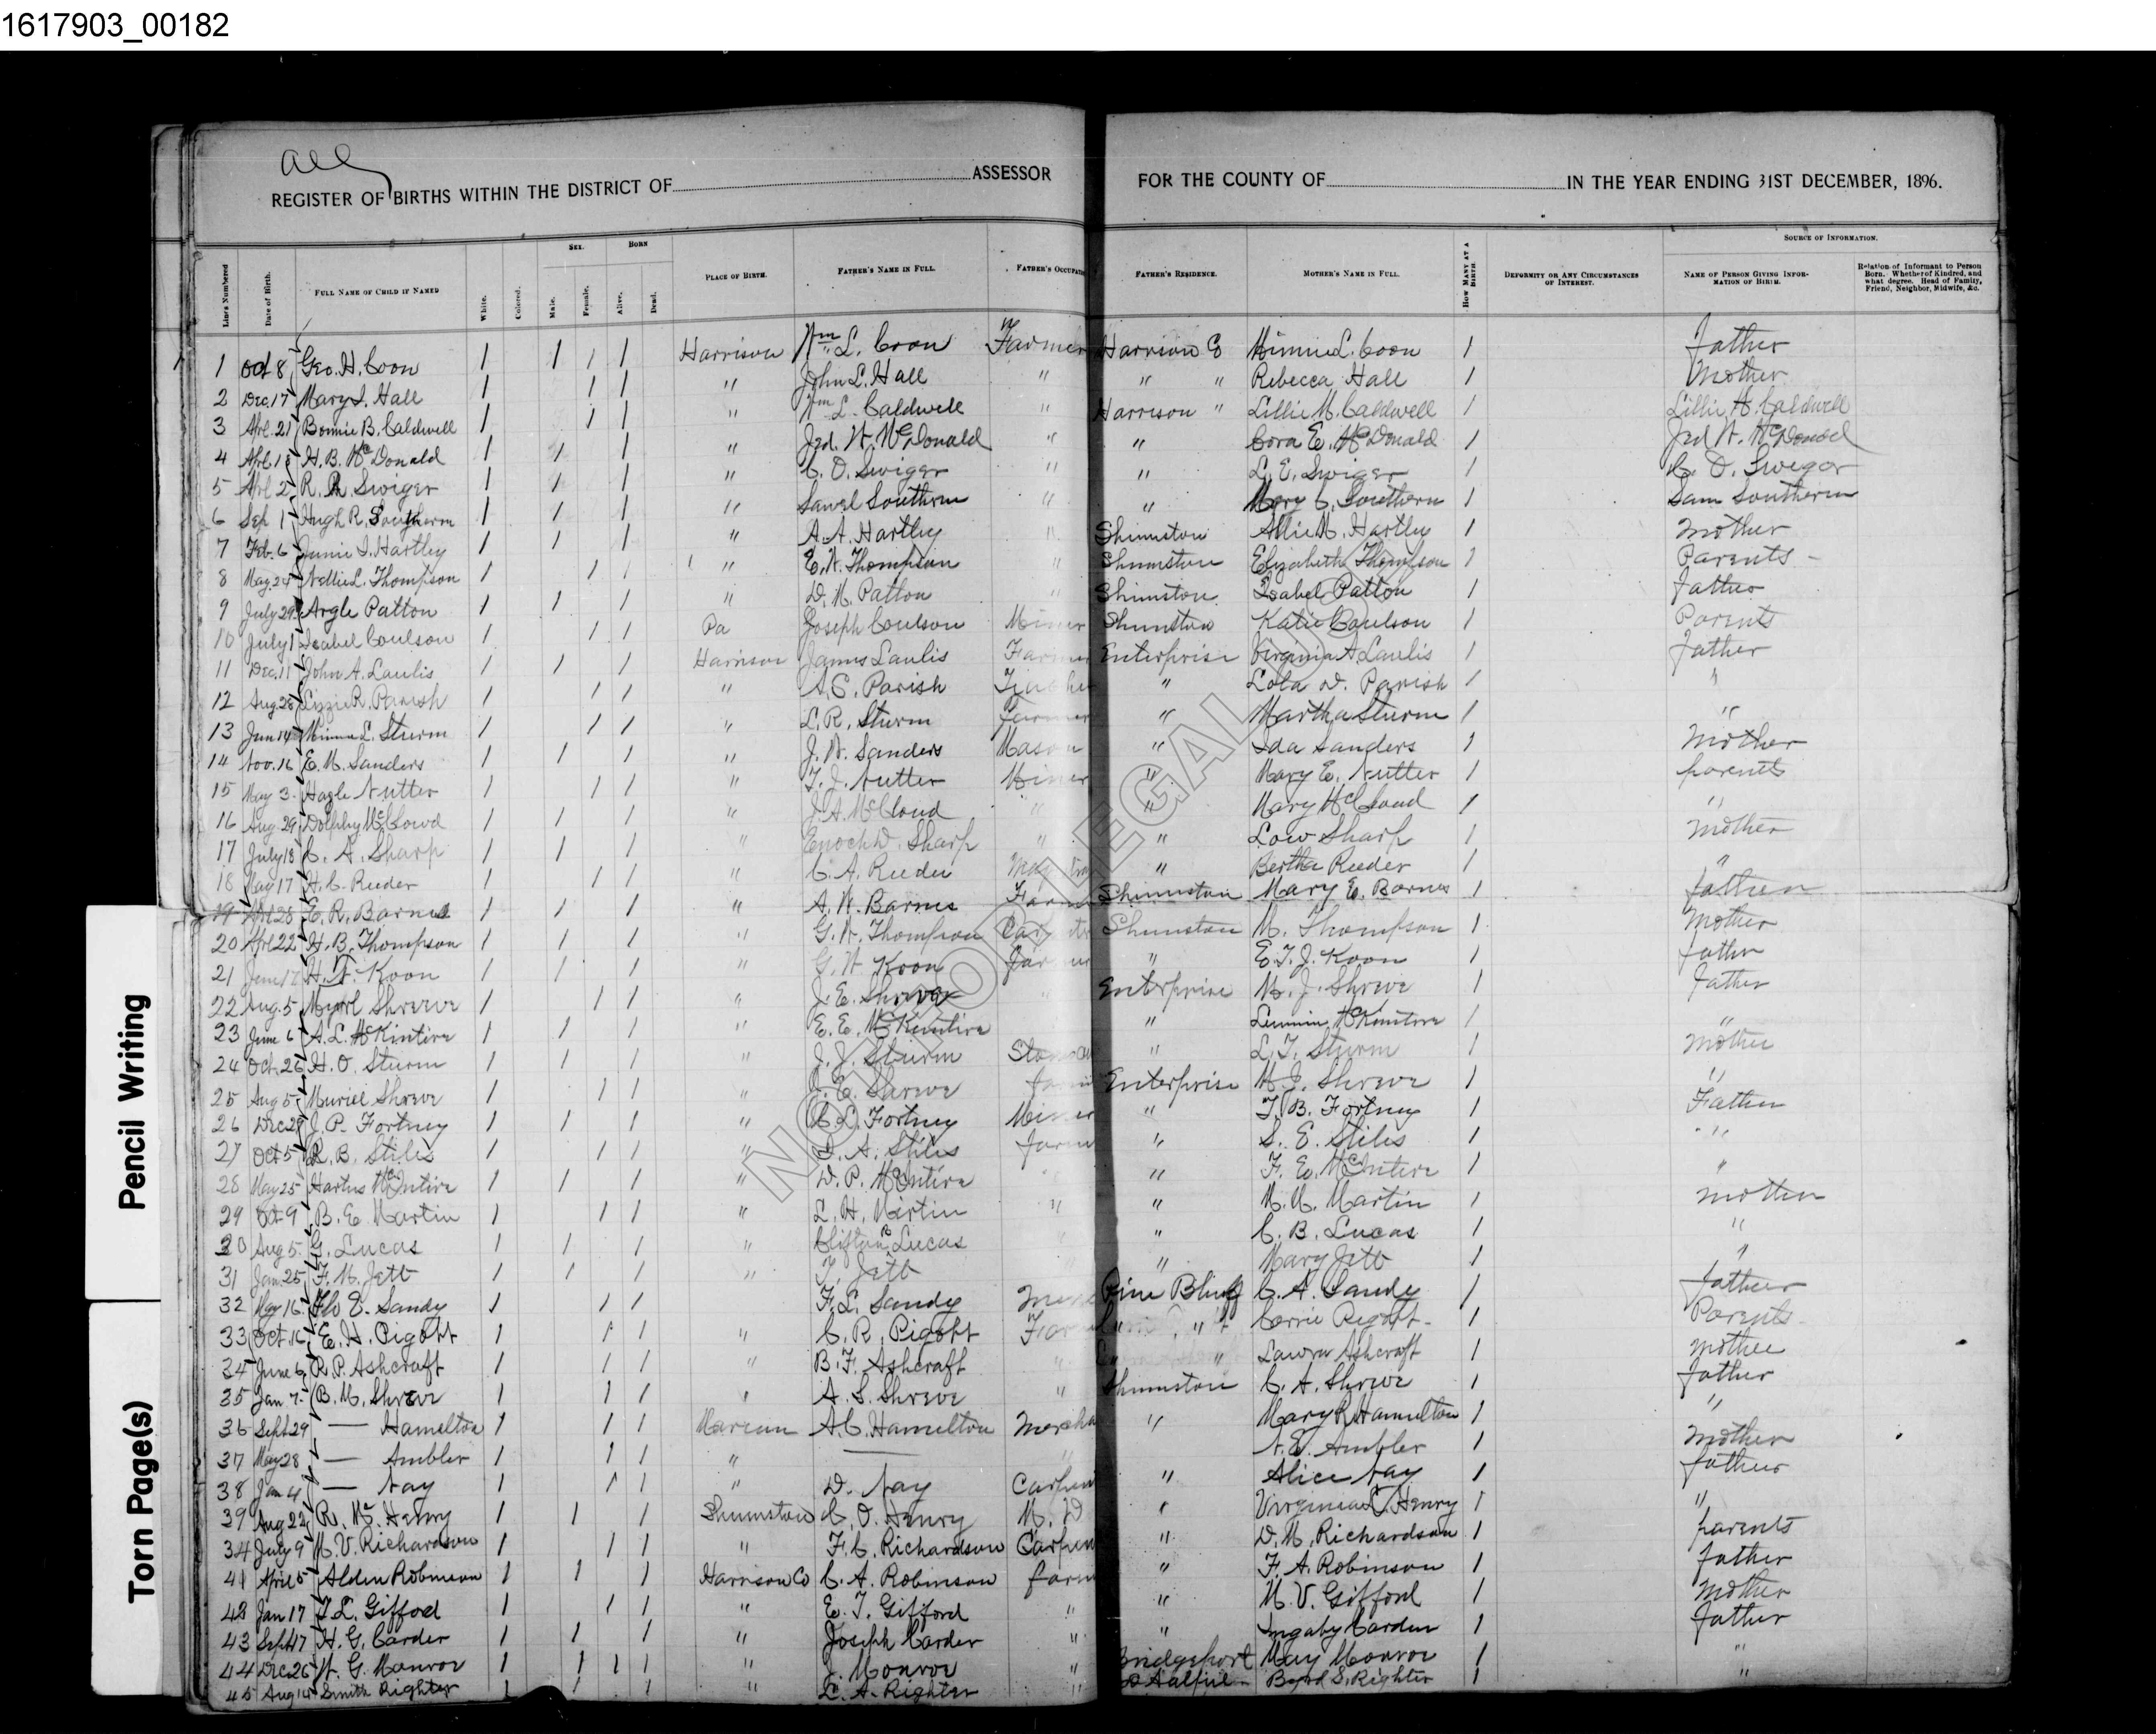 1617903_00182
all
REGISTER OF BIRTHS WITHIN THE DISTRICT OF ASSESSOR FOR THE COUNTY OF IN THE YEAR ENDING 31ST DECEMBER, 1896.
Lines Numbered Date of Birth. FULL NAME OF CHILD IF NAMED White. Colored. SEX. Male. Female. BORN Alive. Dead. PLACE OF BIRTH. FATHER'S NAME IN FULL. FATHER'S OCCUPATI FATHER'S RESIDENCE. MOTHER'S NAME IN FULL. HOW MANY AT A BIRTH. DEFORMITY OR ANY CIRCUMSTANCES OF INTEREST. SOURCE OF INFORMATION. NAME OF PERSON GIVING INFORMATION OF BIRTH. Relation of Informant to Person Born. Whether of Kindred, and what degree. Head of Family, Friend, Neighbor, Midwife, &c.
1 Oct 8 Geo. H. Coon 1 1 1 1 Harrison Wm L. Coon Farmer Harrison Co Minnie L. Coon 1 Father
2 Dec. 17 Mary I. Hall 1 1 1 " John L. Hall " " " Rebecca Hall 1 Mother
3 Apl. 21 Bonnie B. Caldwell 1 1 1 " Wm L. Caldwell " Harrison " Lillie M. Caldwell 1 Lillie M. Caldwell
4 H. B. McDonald 1 1 1 " Jed. W. McDonald " " Cora E. McDonald 1 Jed W. McDonald
5 Apl 2 Swiger 1 1 1 " C. O. Swiger " " L. E. Swiger 1 C. O. Swiger
6 Sep 1 Hugh R. Southern 1 1 1 " Saml Southern " " Mary C. Southern 1 Sam Southern
7 Feb. 6 Junie I. Hartley 1 1 1 " A. A. Hartley " Shinnston Allie M. Hartley 1 Mother
8 May. 24 Nellie L. Thompson 1 1 1 " E. W. Thompson " Shinnston Elizabeth Thompson 1 Parents -
9 July 29 Argle Patton 1 1 1 " D. M. Patton " Shinnston Isabel Patton 1 Father
10 July 1 Isabel Coulson 1 1 1 Pa Joseph Coulson Miner Shinnston Katie Coulson 1 Parents
11 Dec. 11 John A. Laulis 1 1 1 Harrison James Laulis Farmer Enterprise Virginia A. Laulis 1 Father
12 Aug. 28 Lizzie R. Parrish 1 1 1 " A. C. Parish " Lola D. Parish 1 "
13 Jan 14 Minnie L. Sturm 1 1 1 " L. R. Sturm Farmer " Martha Sturm 1 "
14 Nov. 16 E. M. Sanders 1 1 1 " J. W. Sanders Mason " Ida Sanders 1 Mother
15 May 3. Hazle Nutter 1 1 1 " T. J. Nutter Miner " Mary E. Nutter 1 parents
16 Aug. 29 Dolphy McClowd 1 1 1 " J. A. McCloud " " Mary McCloud 1 "
17 July 13 C. A. Sharp 1 1 1 " Enoch D. Sharp " " Low Sharp 1 Mother
18 May 17 H. C. Reeder 1 1 1 " C. A. Reeder " Bertha Reeder 1 "
19 Apl 28 E. R. Barnes 1 1 1 " A. W. Barnes Farm Shinnston Mary E. Barnes 1 father
20 Apl 22 H. B. Thompson 1 1 1 " G. W. Thompson Shinnston M. Thompson 1 Mother
21 H. W. Koon 1 1 1 " G. W Koon Farmer " E. T. J. Koon 1 father
22 Aug. 5 Myrl Shreve 1 1 1 " J. E. Shreve " Enterprise M. J. Shreve 1 Father
23 June 6 A. L. McKintire 1 1 1 " E. E. McKintire " McKintire 1 "
24 Oct. 26 H. O. Sturm 1 1 1 " J. J. Sturm " L. T. Sturm 1 Mother
25 Aug 5 Muriel Shreve 1 1 1 " J. E. Shreve Farm Enterprise M. J. Shreve 1 "
26 Dec 29 J. P. Fortney 1 1 1 " C. L. Fortney Miner " T. B. Fortney 1 Father
27 Oct 5 R. B. Stiles 1 1 1 " I. A. Stiles farm " S. E. Stiles 1 "
28 May 25 Hartus McIntire 1 1 1 " D. P. McIntire " " F. E. McIntire 1 "
29 Oct 9 B. E. Martin 1 1 1 " L. H. Martin " " M. M. Martin 1 Mother
30 Aug 5. G. Lucas 1 1 1 " Clifton Lucas " " C. B. Lucas 1 "
31 Jan. 25 F. M. Jett 1 1 1 " T. Jett " " Mary Jett 1 "
32 May 16 Flo E. Sandy 1 1 1 F. L. Sandy Pine Bluff C. A. Sandy 1 father
33 Oct. 16 E. H. Pigott 1 1 1 " C. R. Pigott Farm Carrie Pigott 1 Parents
34 June 6 R. P. Ashcraft 1 1 1 " B. F. Ashcraft " " Laura Ashcraft 1 Mother
35 Jan 7. B. M. Shreve 1 1 1 " A. S. Shreve " Shinnston C. A. Shreve 1 father
36 Sept 29 — Hamelton 1 1 1 Marion A. C. Hamelton Mercha " Mary R Hamelton 1 "
37 May 28 — Ambler 1 1 1 " — " Ambler 1 Mother
38 Jan 4 — Nay 1 1 1 " D. Nay Carpen " Alice Nay 1 father
39 Aug 22 R. M. Henry 1 1 1 Shinnston C. O. Henry M. D " Virginia C. Henry 1 "
34 July 9 M. V. Richardson 1 1 1 " F. C. Richardson Carpen " D. M. Richardson 1 parents
41 April 5 Alden Robinson 1 1 1 Harrison Co C. A. Robinson farm " F. A. Robinson 1 father
43 Jan 17 T. L. Gifford 1 1 1 " E. T. Gifford " " M. V. Gifford 1 Mother
43 Sept 17 H. G. Carder 1 1 1 " Joseph Carder " " Ingaby Carder 1 father
44 Dec. 26 W. G. Monroe 1 1 1 1 " J. Monroe " Bridgeport May Monroe 1 "
45 Aug 14 Smith Righter 1 1 1 " L. A. Righter " Byrd S. Righter 1 "
Pencil Writing
Torn Page(s)